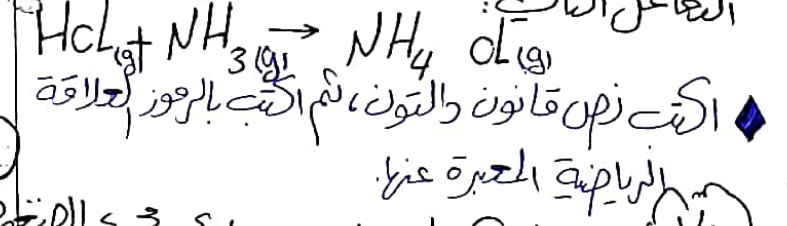 التفاعل التالي:
HCL(g) + NH3(g) → NH4 CL(g)
اكتب نص قانون دالتون، ثم اكتب بالرموز العلاقة
الرياضية المعبرة عنها.